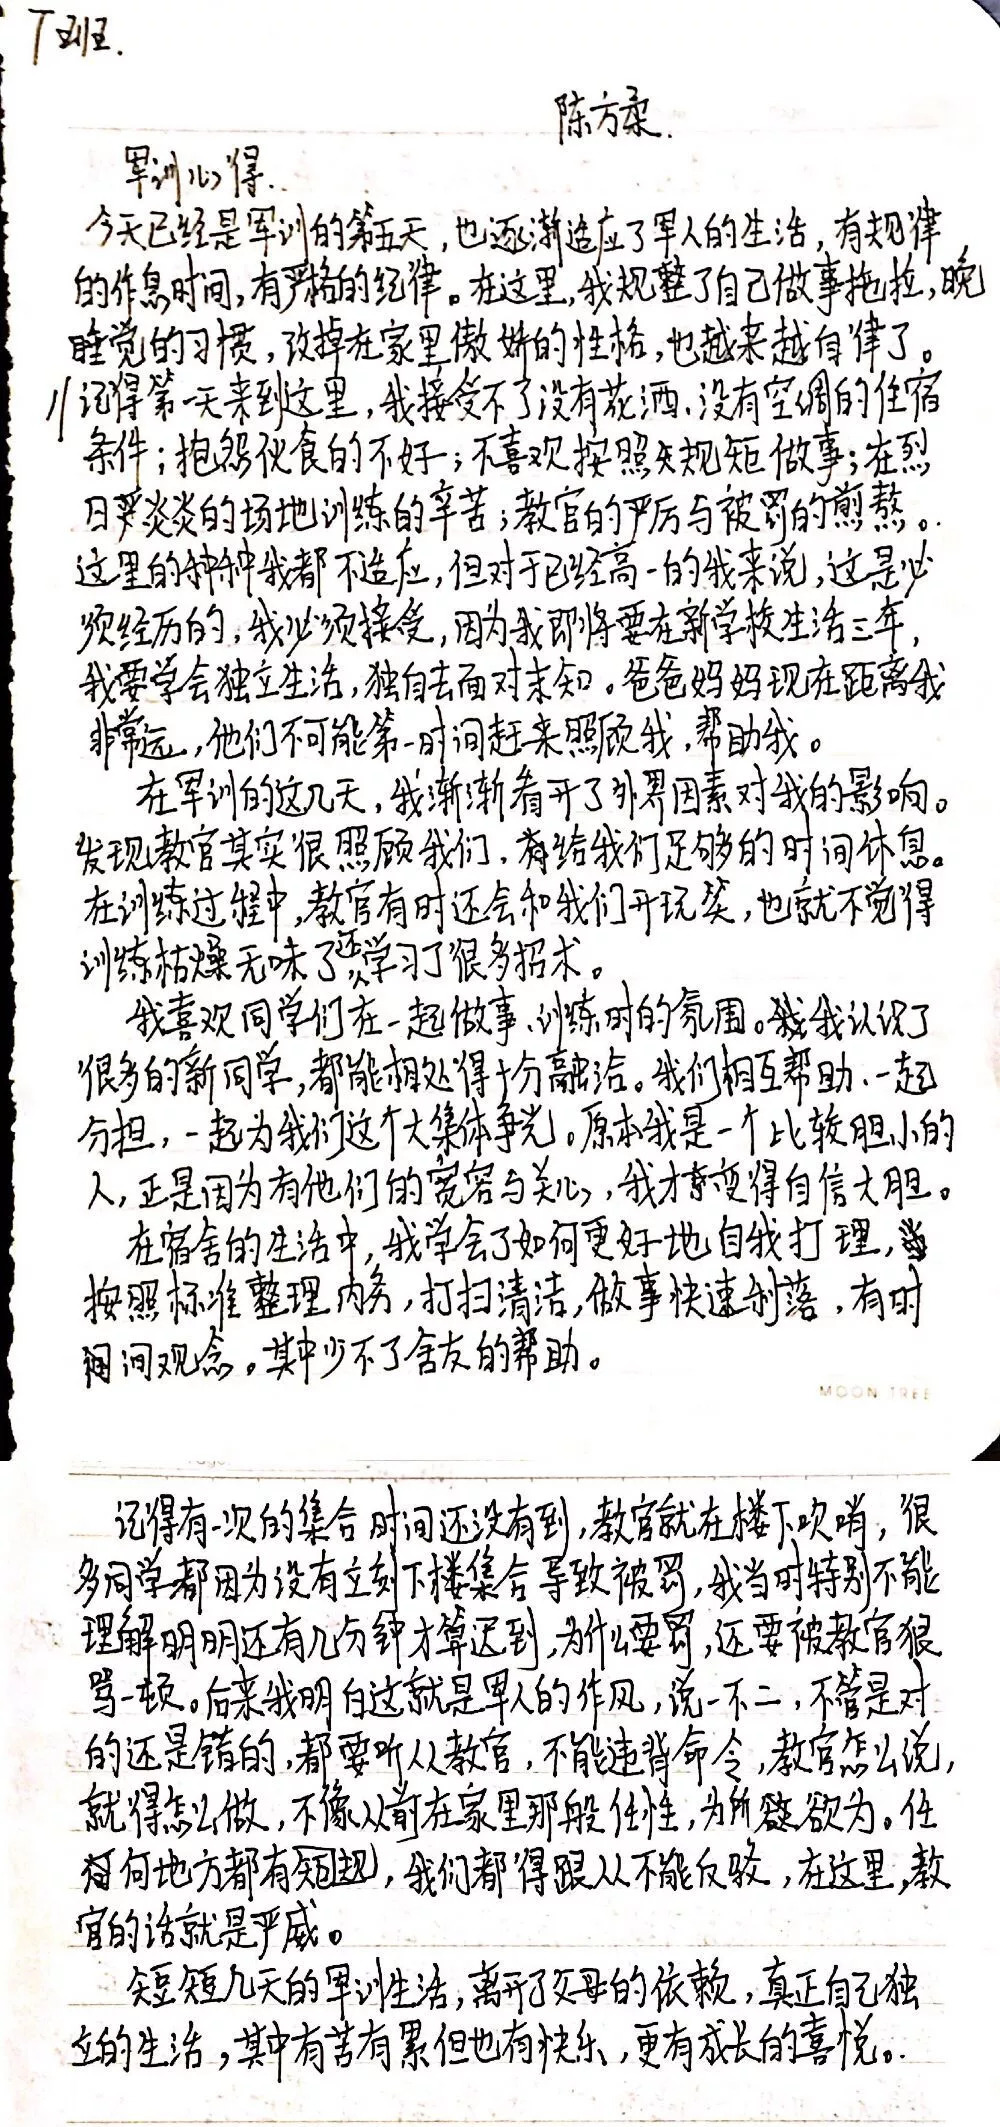 丁班.
陈方柔.
军训心得..
今天已经是军训的第五天,也逐渐适应了军人的生活,有规律
的作息时间,有严格的纪律。在这里,我规整了自己做事拖拉,晚
睡觉的习惯,改掉在家里傲娇的性格,也越来越自律了。
//记得第一天来到这里,我接受不了没有花洒、没有空调的住宿
条件;抱怨伙食的不好;不喜欢按照规矩做事;在烈
日炎炎的场地训练的辛苦;教官的严厉与被罚的煎熬。
这里的种种我都不适应,但对于已经高一的我来说,这是必
须经历的,我必须接受,因为我即将要在新学校生活三年,
我要学会独立生活,独自去面对未知。爸爸妈妈现在距离我
非常远,他们不可能第一时间赶来照顾我,帮助我。
在军训的这几天,我渐渐看开了外界因素对我的影响。
发现教官其实很照顾我们,有给我们足够的时间休息。
在训练过程中,教官有时还会和我们开玩笑,也就不觉得
训练枯燥无味了还学习了很多招术。
我喜欢同学们在一起做事、训练时的氛围。我认识了
很多的新同学,都能相处得十分融洽。我们相互帮助、一起
分担,一起为我们这个大集体争光。原本我是一个比较胆小的
人,正是因为有他们的宽容与关心,我才变得自信大胆。
在宿舍的生活中,我学会了如何更好地自我打理,
按照标准整理内务,打扫清洁,做事快速利落,有时
间观念。其中少不了舍友的帮助。
MOON TREE
记得有一次的集合时间还没有到,教官就在楼下吹哨,很
多同学都因为没有立刻下楼集合导致被罚,我当时特别不能
理解明明还有几分钟才算迟到,为什么要罚,还要被教官狠
骂一顿。后来我明白这就是军人的作风,说一不二,不管是对
的还是错的,都要听从教官,不能违背命令,教官怎么说,
就得怎么做,不像从前在家里那般任性,为所欲为。任
何地方都有矩规,我们都得跟从不能反驳,在这里,教
官的话就是严威。
短短几天的军训生活,离开了父母的依赖,真正自己独
立的生活,其中有苦有累但也有快乐,更有成长的喜悦。